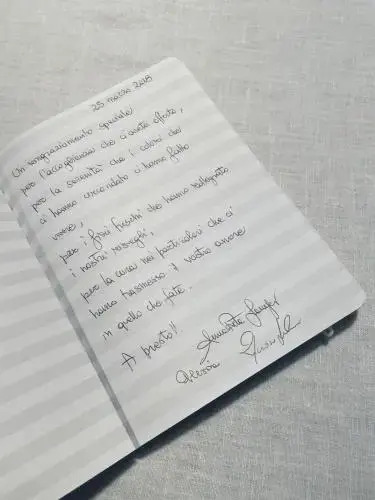 25 marzo 2018
Un ringraziamento speciale
per l'accoglienza che ci avete offerto,
per la serenità che i colori che
ci hanno circondato ci hanno fatto
vivere,
per i fiori freschi che hanno rallegrato
i nostri risvegli,
per la cura nei particolari che ci
hanno trasmesso il vostro amore
in quello che fate.
A presto!!
Alessia